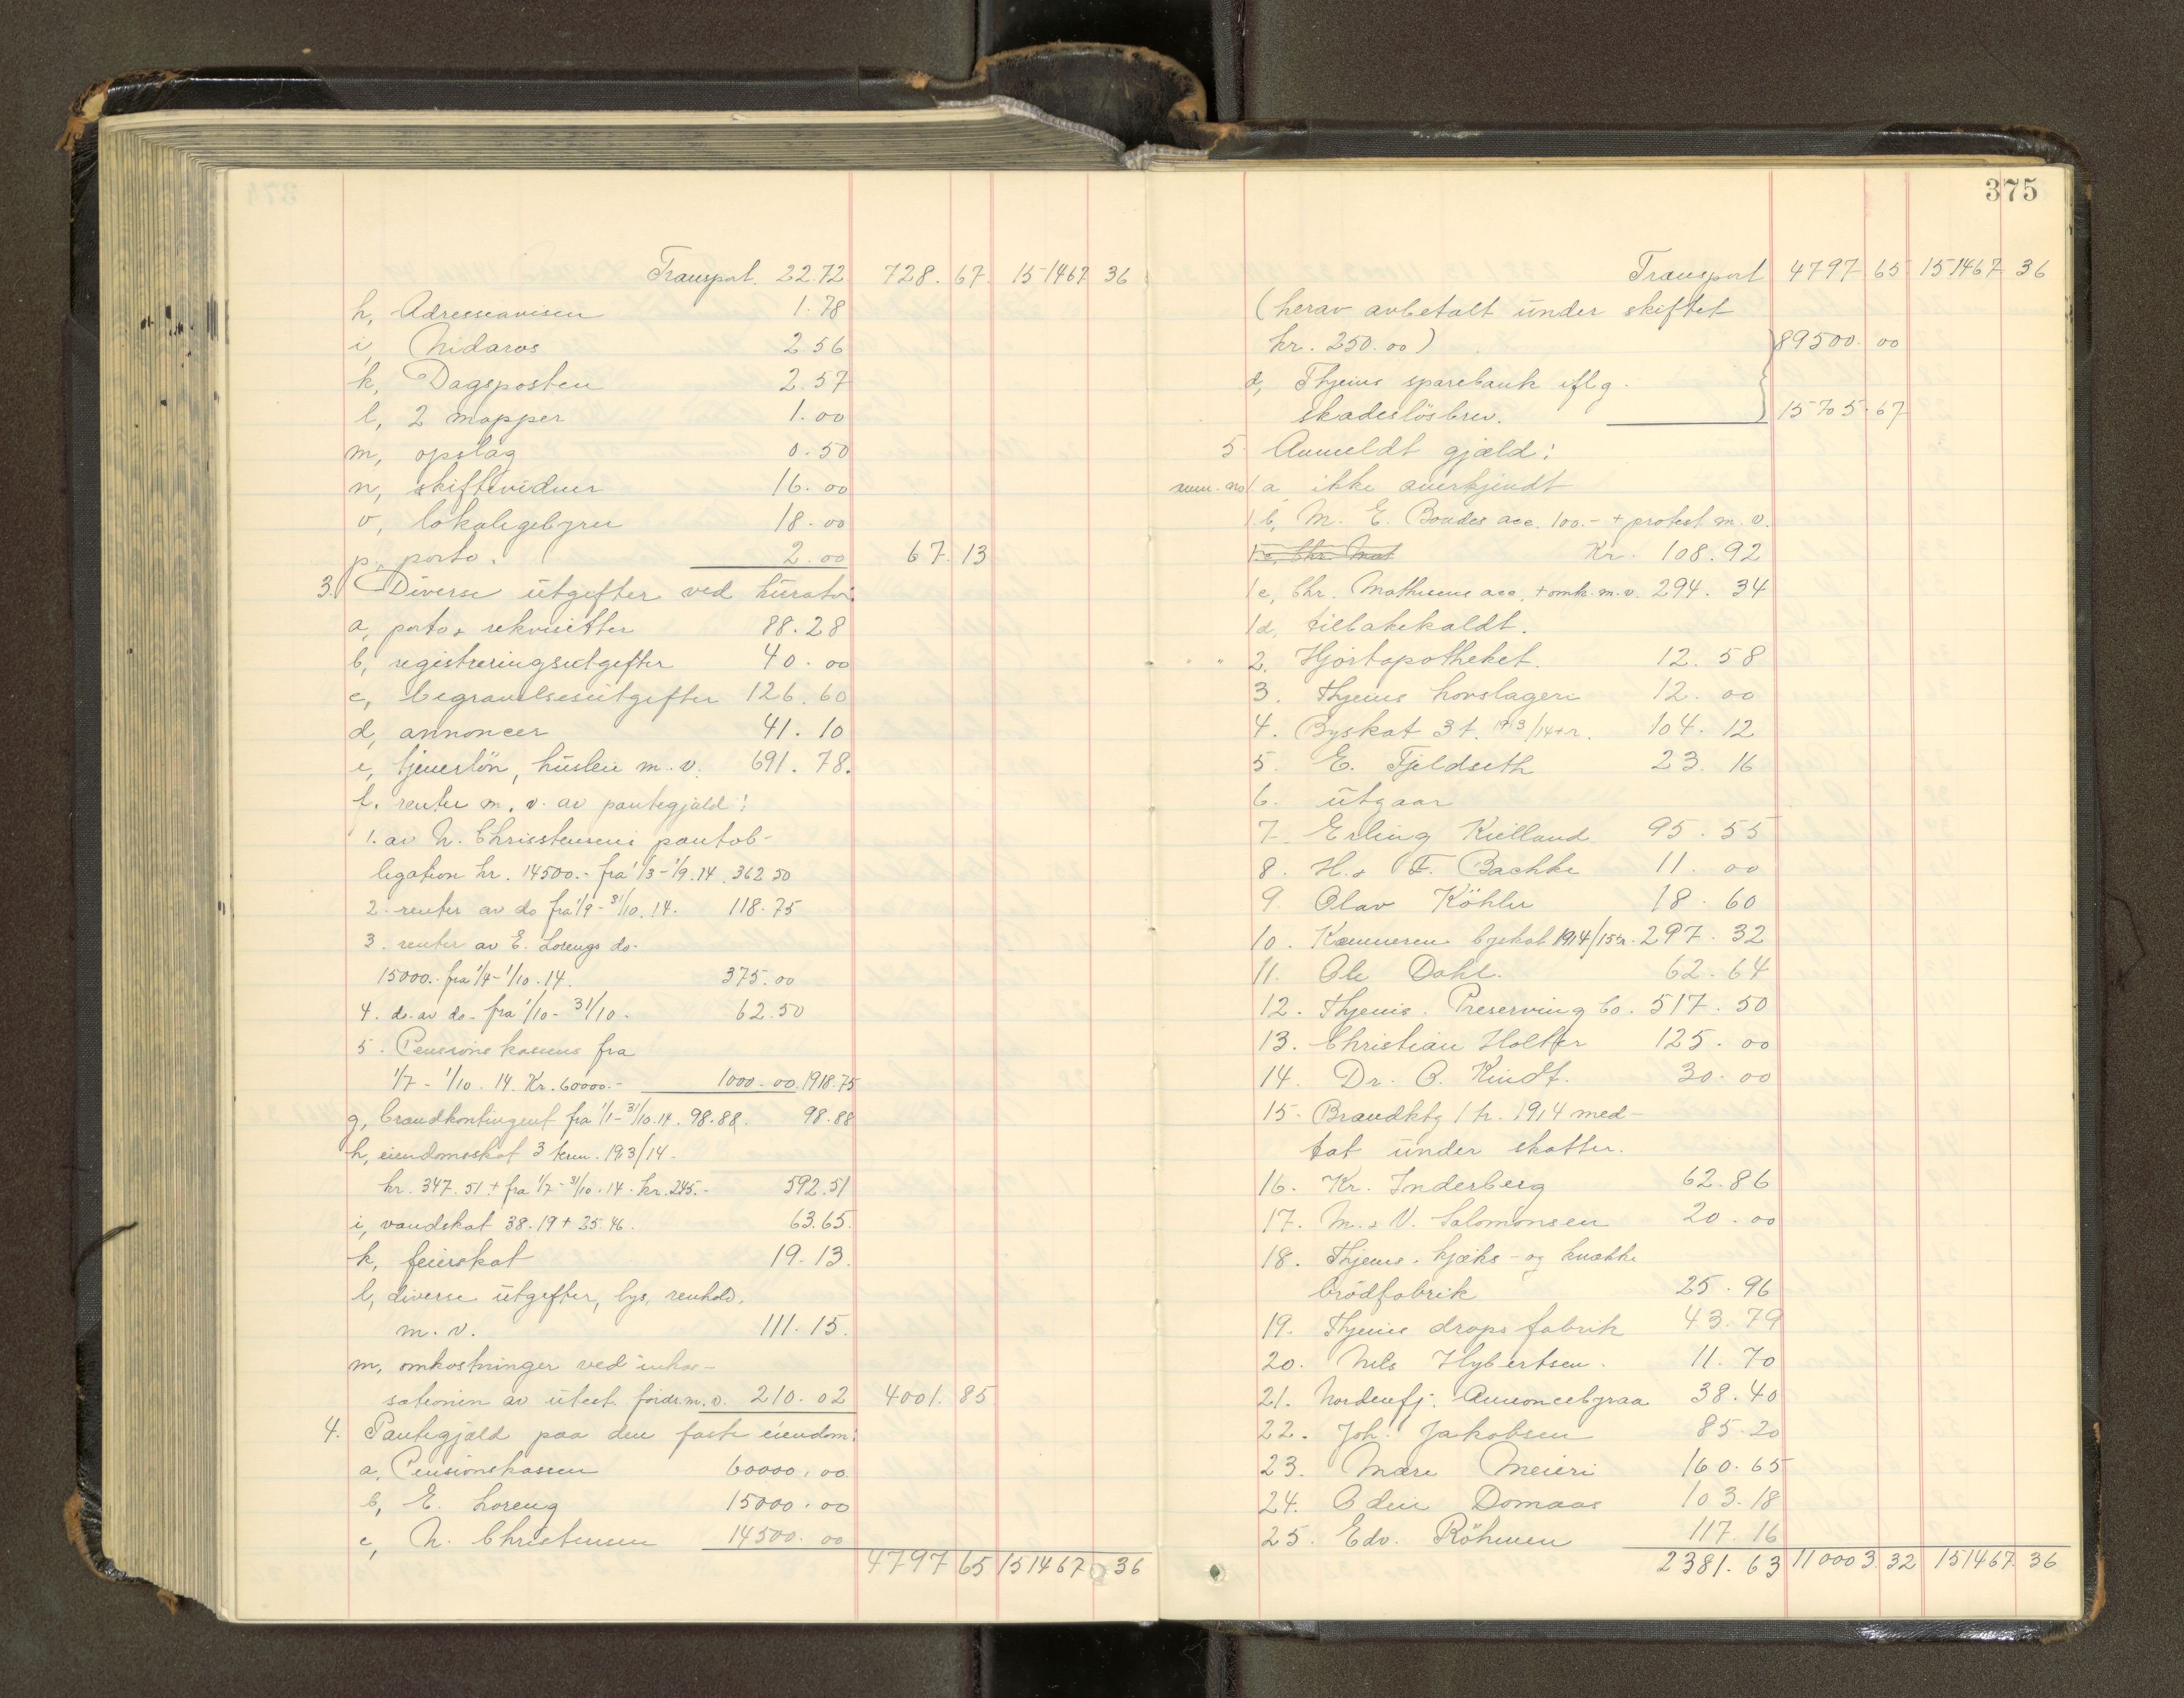 Transport. 22.72 728. 67. 151467 36
h, Adresseavisen 1.78
i, Nidaros 2.56
k, Dagsposten 2.57
l, 2 mapper 1.00
m, opslag 0.50
n, skiftevidner 16.00
o, lokalegebyrer 18.00
p, porto. 2.00 67.13
3. Diverse utgifter ved kurator:
a, porto & rekvisitter 88.28
b, registreringsutgifter 40.00
c, begravelsesutgifter 126.60
d, annoncer 41.10
e, tjenerlön, husleie m.v. 691.78.
f. renter m.v. av pantegjæld:
1. av N. Christensens pantob-
ligation kr. 14500.- fra 1/3-1/9.14. 362 50
2. renter av do fra 1/9-31/10.14. 118.75
3. renter av E. Lorengs do.
15000.- fra 1/4-1/10.14. 375.00
4. do. av do. fra 1/10-31/10. 62.50
5. Pensionskassens fra
1/7-1/10.14. Kr. 60000.- 1000.00. 1918.75
g, brandkontingent fra 1/1-31/10.14. 98.88. 98.88
h, eiendomsskat 3 term. 1913/14.
kr. 347.51 + fra 1/7-31/10.14. kr. 245.- 592.51
i, vandskat 38.19 + 25.46. 63.65.
k, feierskat 19.13.
l, diverse utgifter, lys, renhold,
m.v. 111.15.
m, omkostninger ved inkas-
sationen av utest. fordr. m.v. 210.02 4001.85
4. Pantegjæld paa den faste eiendom:
a, Pensionskassen 60000.00.
b, E. Loreng 15000.00
c, N. Christensen 14500.00
4797 65 151467 36
375
Transport 4797 65 151467 36
(herav avbetalt under skiftet
kr. 250.00) 89500.00
d, Thjems sparebank iflg.
skadeslösbrev. 15705.67
5. Anmeldt gjæld:
anm. no 1 a ikke anerkjendt
1 b, M. E. Bondes acc. 100.- + protest m.v.
1 c, Chr. Mat Kr. 108.92
1 c, Chr. Mathisens acc. + omk. m.v. 294.34
1 d, tilbakekaldt.
" " 2. Hjortapotheket. 12.58
3. Thjems hovslageri 12.00
4. Byskat 3 t. 1913/14 + r. 104.12
5. E. Fjeldseth 23.16
6. utgaar
7. Erling Kielland 95.55
8. H. & F. Bachke 11.00
9. Olav Köhler 18.60
10. Kæmneren byskat 1914/15 tr. 297.32
11. Ole Dahl. 62.64
12. Thjems. Preserving Co. 517.50
13. Christian Holtter 125.00
14. Dr. O. Kindt. 30.00
15. Brandktg 1 h. 1914 med-
tat under skatter.
16. Kr. Inderberg 62.86
17. M. & V. Salomonsen 20.00
18. Thjems. kjæks- og knække
brödfabrik 25.96
19. Thjems dropsfabrik 43.79
20. Nils Hybertsen. 11.70
21. Nordenfj. Annoncebyraa 38.40
22. Joh. Jakobsen 85.20
23. Mære Meieri 160.65
24. Odin Domaas 103.18
25. Edv. Röhmen 117.16
2381.63 110003 32 151467 36